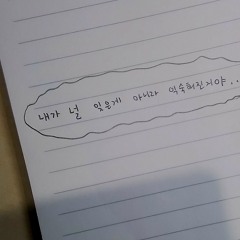 내가 널 잊은게 아니라 익숙해진거야..